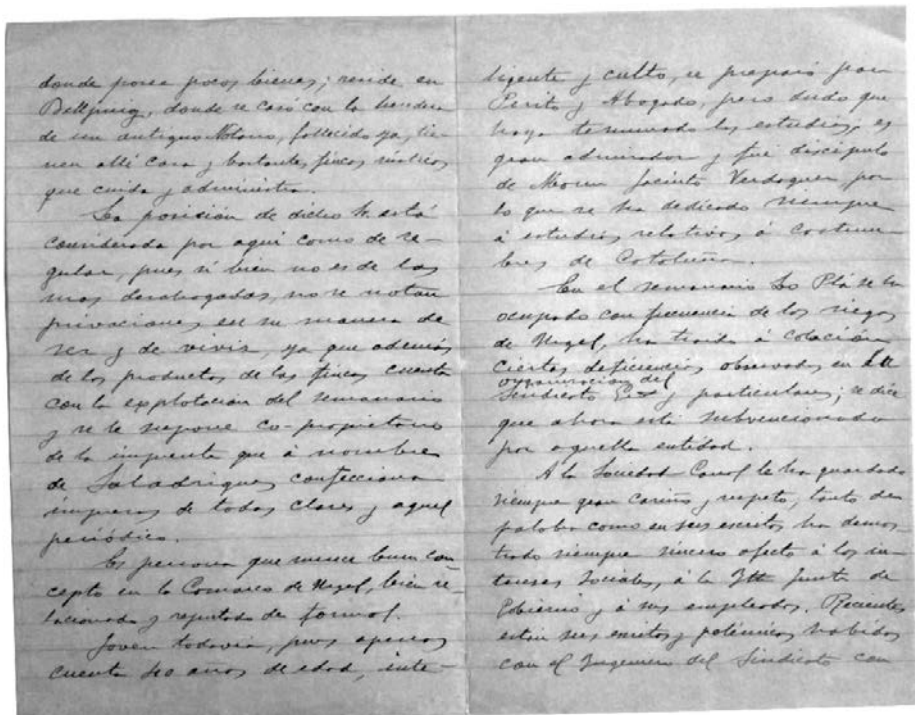 donde posee pocos bienes; reside en
Bellpuig, donde se casó con la heredera
de un antiguo Notario, fallecido ya, tie-
nen allí casa y bastantes fincas rústicas,
que cuida y administra.
La posición de dicho Sr. está
considerada por aquí como de re-
gular, pues si bien no es de las
mas desahogadas, no se notan
privaciones en su manera de
ser y de vivir, ya que además
de los productos de las fincas cuenta
con la explotación del semanario
y se le supone co-propietario
de la imprenta que á nombre
de Saladrigues confecciona
impresos de todas clases y aquel
periódico.
Es persona que merece buen con
cepto en la Comarca de Urgel, bien re-
lacionada y reputada de formal.
Joven todavía, pues apenas
cuenta 40 años de edad, inte-
ligente y culto, se preparó para
Perito y Abogado, pero dudo que
haya terminado los estudios; es
gran admirador y fué discípulo
de Mossen Jacinto Verdaguer, por
lo que se ha dedicado siempre
á estudios relativos á costum-
bres de Cataluña.
En el semanario Lo Pla se ha
ocupado con frecuencia de los riegos
de Urgel, ha traido á colación
ciertas deficiencias observadas en la
organizacion del
Sindicato Gral y particulares; se dice
que ahora está subvencionado
por aquella entidad.
A la Sociedad Canal le ha guardado
siempre gran cariño y respeto, tanto de
palabra como en sus escritos ha demos
trado siempre sincero afecto á los in-
tereses Sociales, á la Junta de
Gobierno y á sus empleados. Recientes
están sus escritos y polémicas habidas
con el Ingeniero del Sindicato con